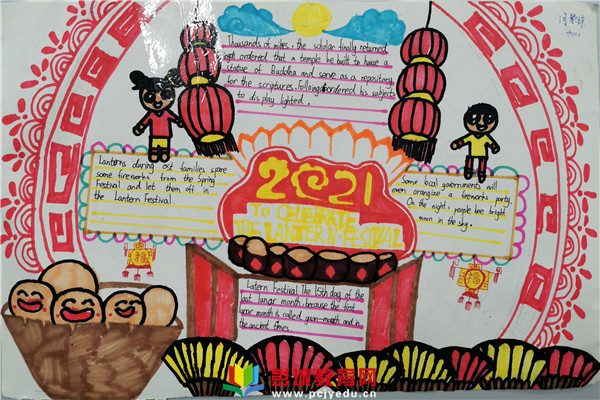 Thousands of miles, the scholar finally returned
ordered that a temple be built to have a
statue of Buddha and serve as a repository
for the scriptures. ordered his subjects
to display lighted.
Lanterns during families spare
some fireworks from the Spring
Festival and let them off in
the Lantern Festival.
Some local governments will
even organize a fireworks party.
On the night, people bright
moon in the sky.
2021
TO CELEBRATE
THE LANTERN FESTIVAL
Latern Festival The 15th day of the
last lunar month, because the first
lunar month is called yuan-month and in
the ancient times.
福
福
彭城教育网
www.pcjyedu.cn